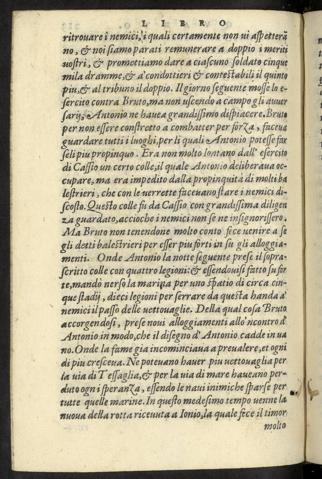 LIBRO
ritrouare i nemici, i quali certamente non ui aspetterā
no, & noi siamo parati remunerare a doppio i meriti
uostri, & promettiamo dare a ciascuno soldato cinque
mila dramme, & a' condottieri & contestabili il quinto
piu, & al tribuno il doppio. Il giorno seguente mosse lo e-
sercito contra Bruto, ma non uscendo a campo gli auuer
sarij, Antonio ne haueа grandissimo dispiacere. Bruto
per non essere constretto a combatter per forza, faceua
guardare tutti i luoghi, per li quali Antonio potesse far
seli piu propinquo. Era non lontano dall' esercito
di Cassio un certo colle, il quale Antonio deliberaua oc-
cupare, ma era impedito dalla propinquità di molti ba
lestrieri, che con le uerrette faceuano stare i nemici di-
scosto. Questo colle fu da Cassio con grandissima diligen
za guardato, accioche i nemici non se ne insignorissero.
Ma Bruto non tenendone molto conto fece uenire a se
gli detti balestrieri per esser piu forti in su gli alloggia-
menti. Onde Antonio la notte seguente prese il sopra-
scritto colle con quattro legioni: & essendouisi fatto fur
te, mando uerso la marina per uno spatio di circa cin-
que stadij, dieci legioni per serrare da questa banda a'
nemici il passo delle uettouaglie. Della qual cosa Bruto
accorgendosi, prese noui alloggiamenti allo'ncontro d'
Antonio in modo, che il disegno d' Antonio cadde in ua
no. Onde la fame gia incominciaua a preualere, et ogni
di piu cresceua. Ne poteuano hauer piu uettouaglia per
la uia di Tessaglia, & per la uia di mare haueano per-
duto ogni speranza, essendo le naui inimiche sparse per
tutte quelle marine. In questo medesimo tempo uenne la
nuoua della rotta riceuuta a Ionio, la quale fece il timor
molto